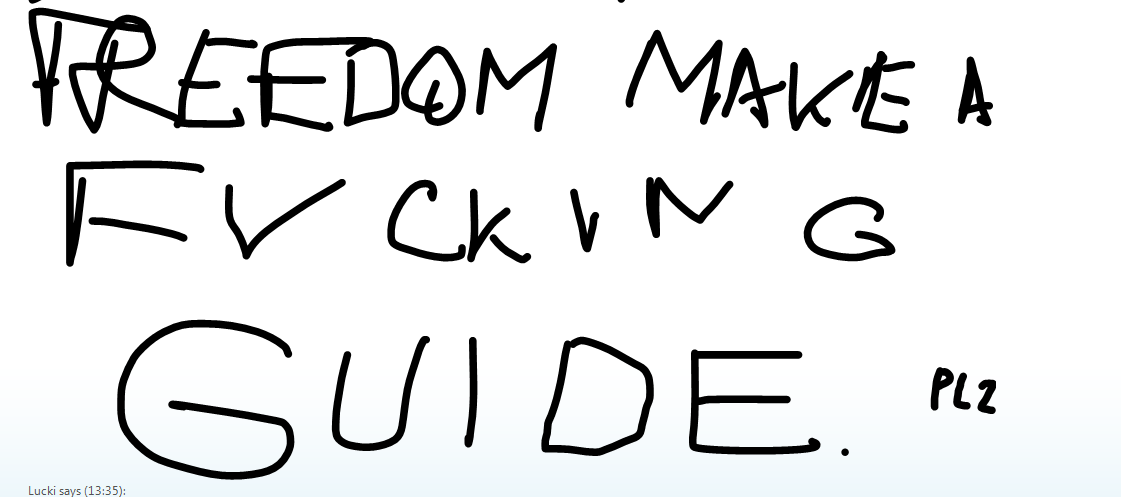 FREEDOM MAKE A
FVCKING
GUIDE. PLZ
Lucki says (13:35):